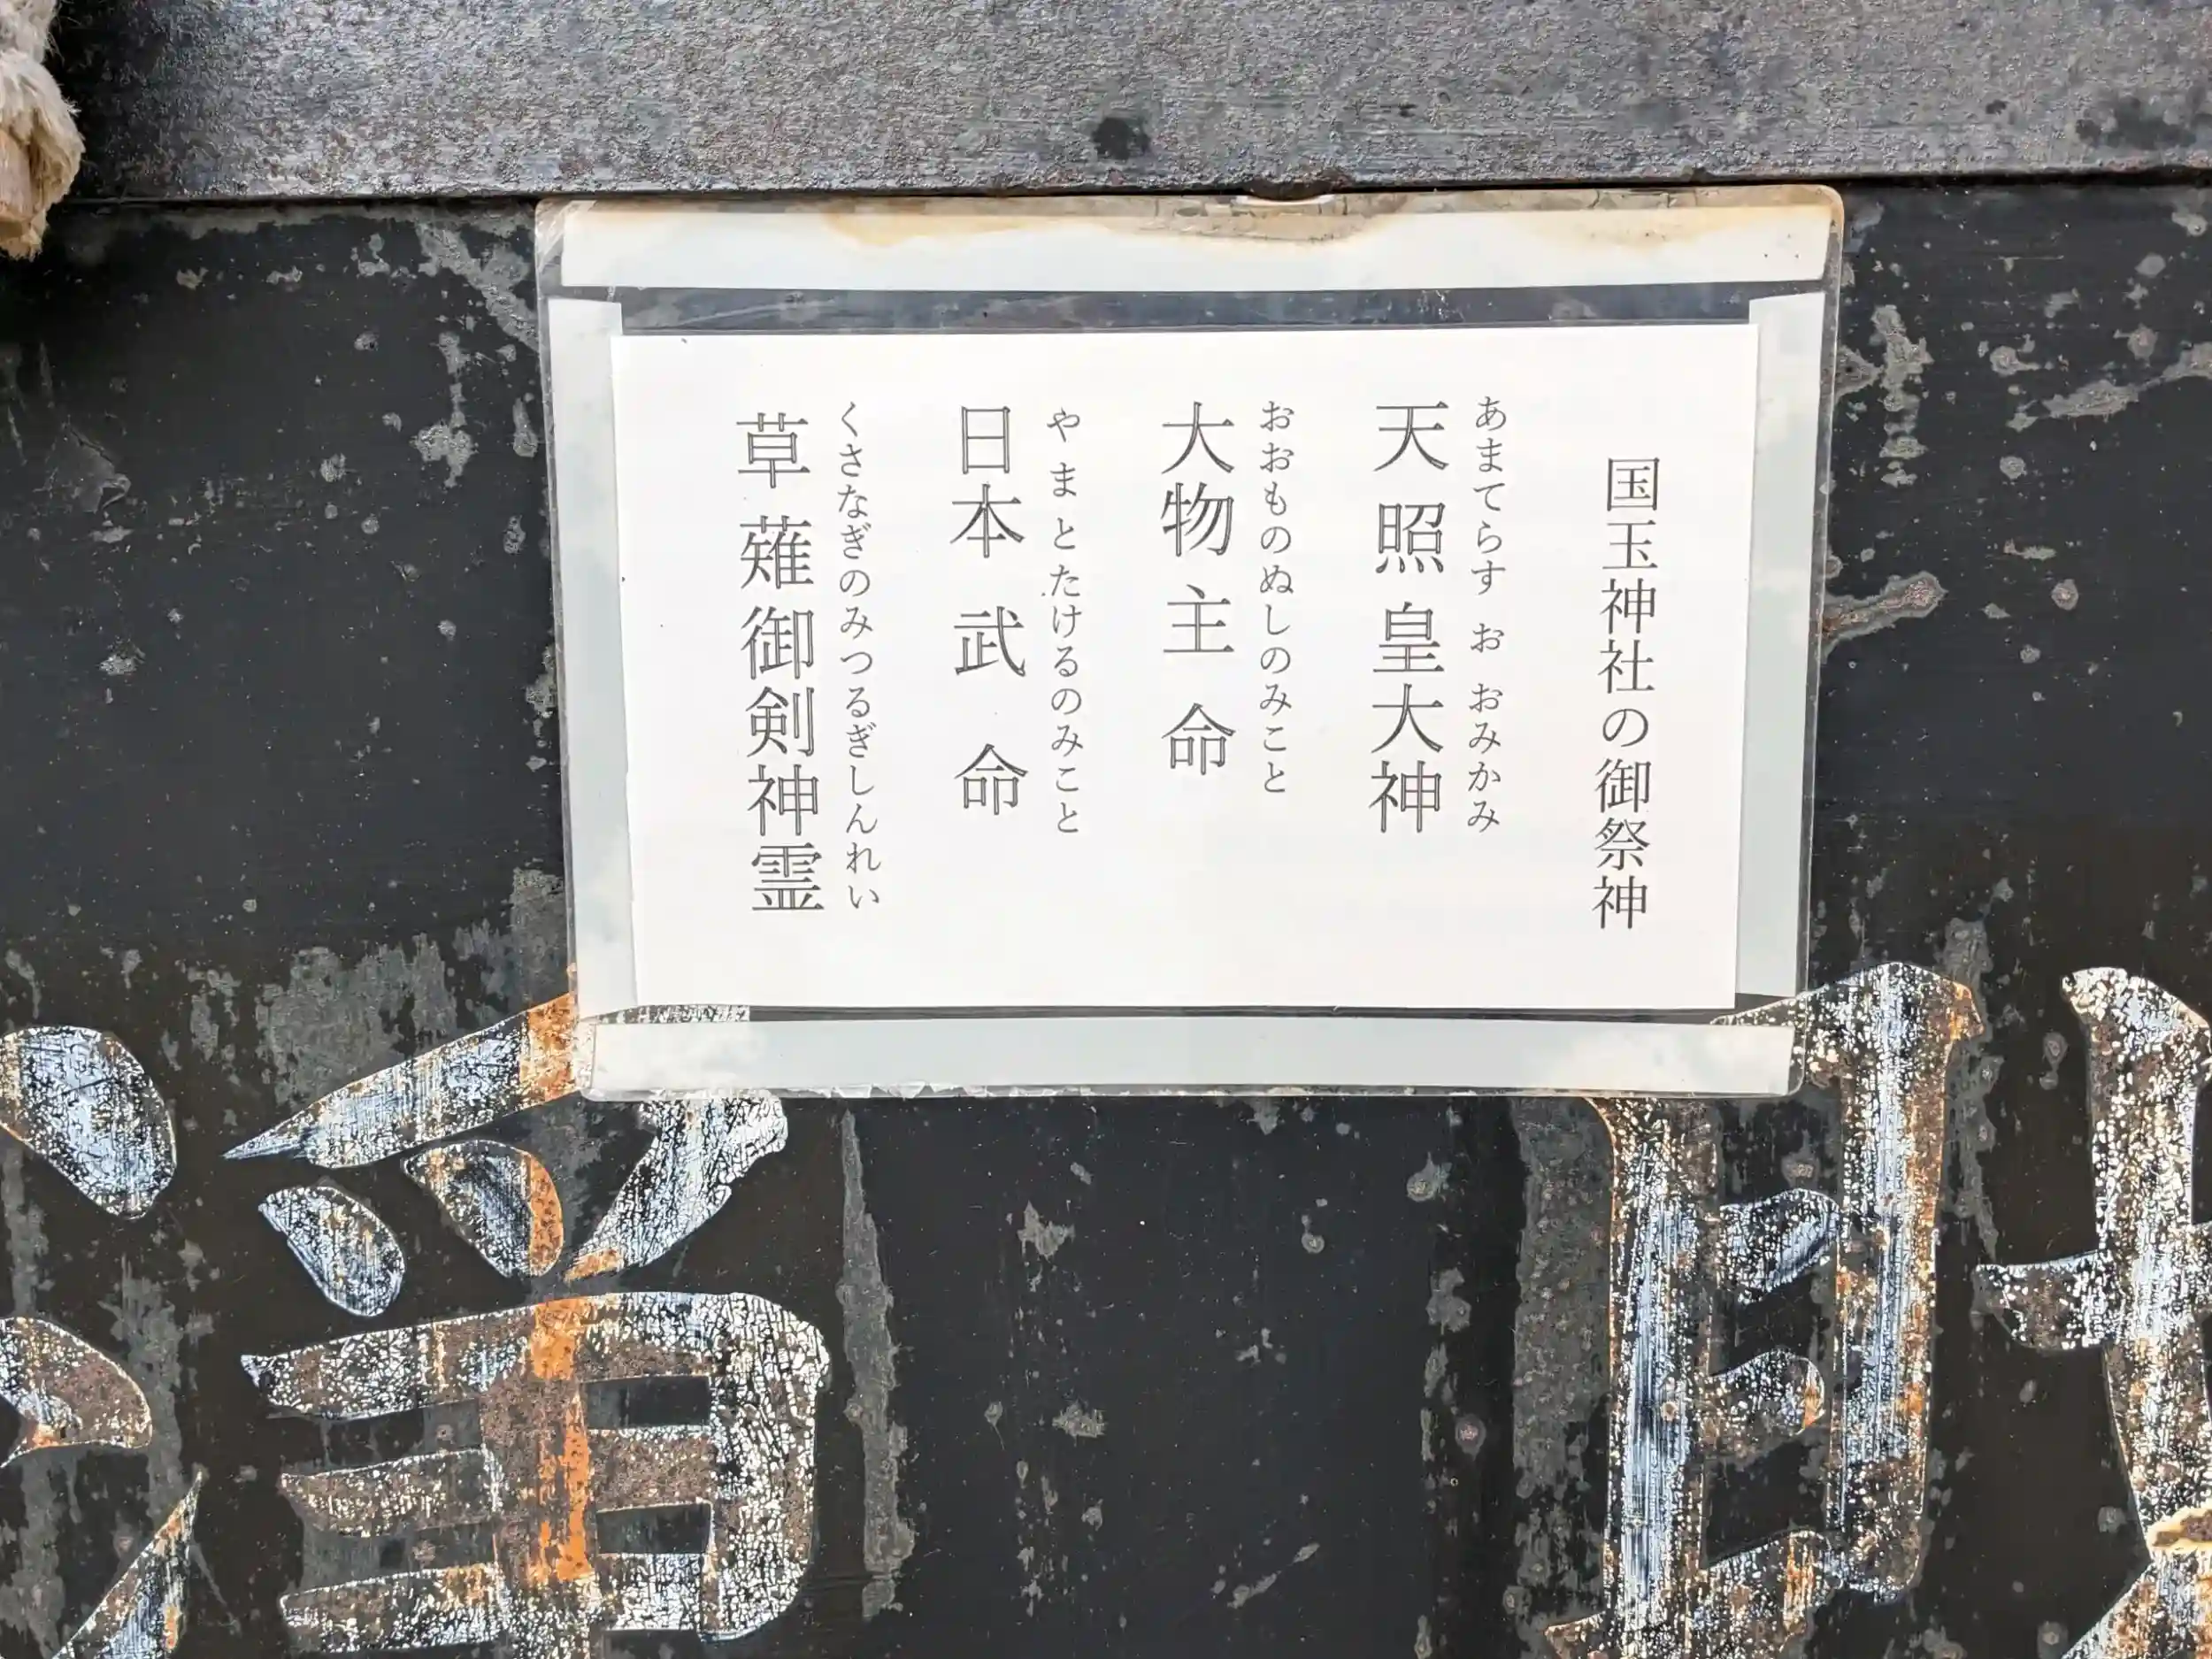 国玉神社の御祭神
あまてらす お おみかみ
天照皇大神
おおものぬしのみこと
大物主命
やまとたけるのみこと
日本武命
くさなぎのみつるぎしんれい
草薙御剣神霊